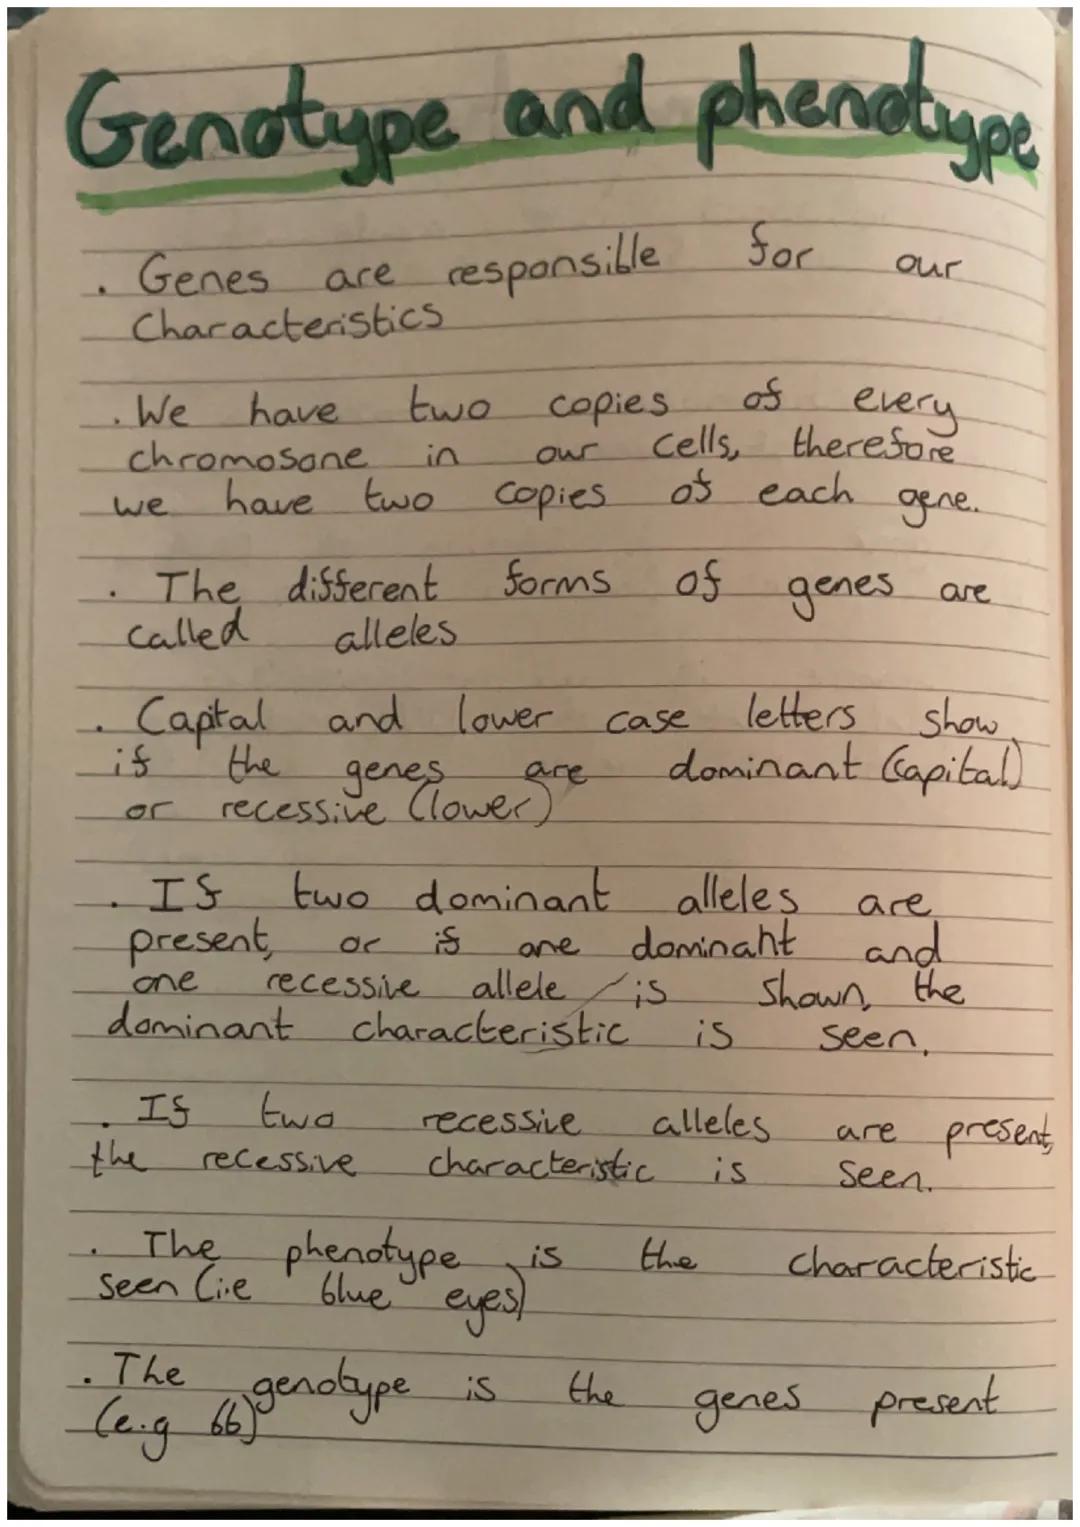 Genotype and phenotype
. Genes are responsible for our
Characteristics
. We have two copies of every
chromosone in our cells, therefore
we have two copies of each gene.
. The different forms of genes are
called alleles
. Capital and lower case letters show
if the genes are dominant (capital)
or recessive (lower)
. If two dominant alleles are
present, or if one dominant and
one recessive allele is shown, the
dominant characteristic is seen.
. If two recessive alleles are present,
the recessive characteristic is seen.
. The phenotype is the characteristic
seen (i.e blue eyes)
. The genotype is the genes present
(e.g bb)